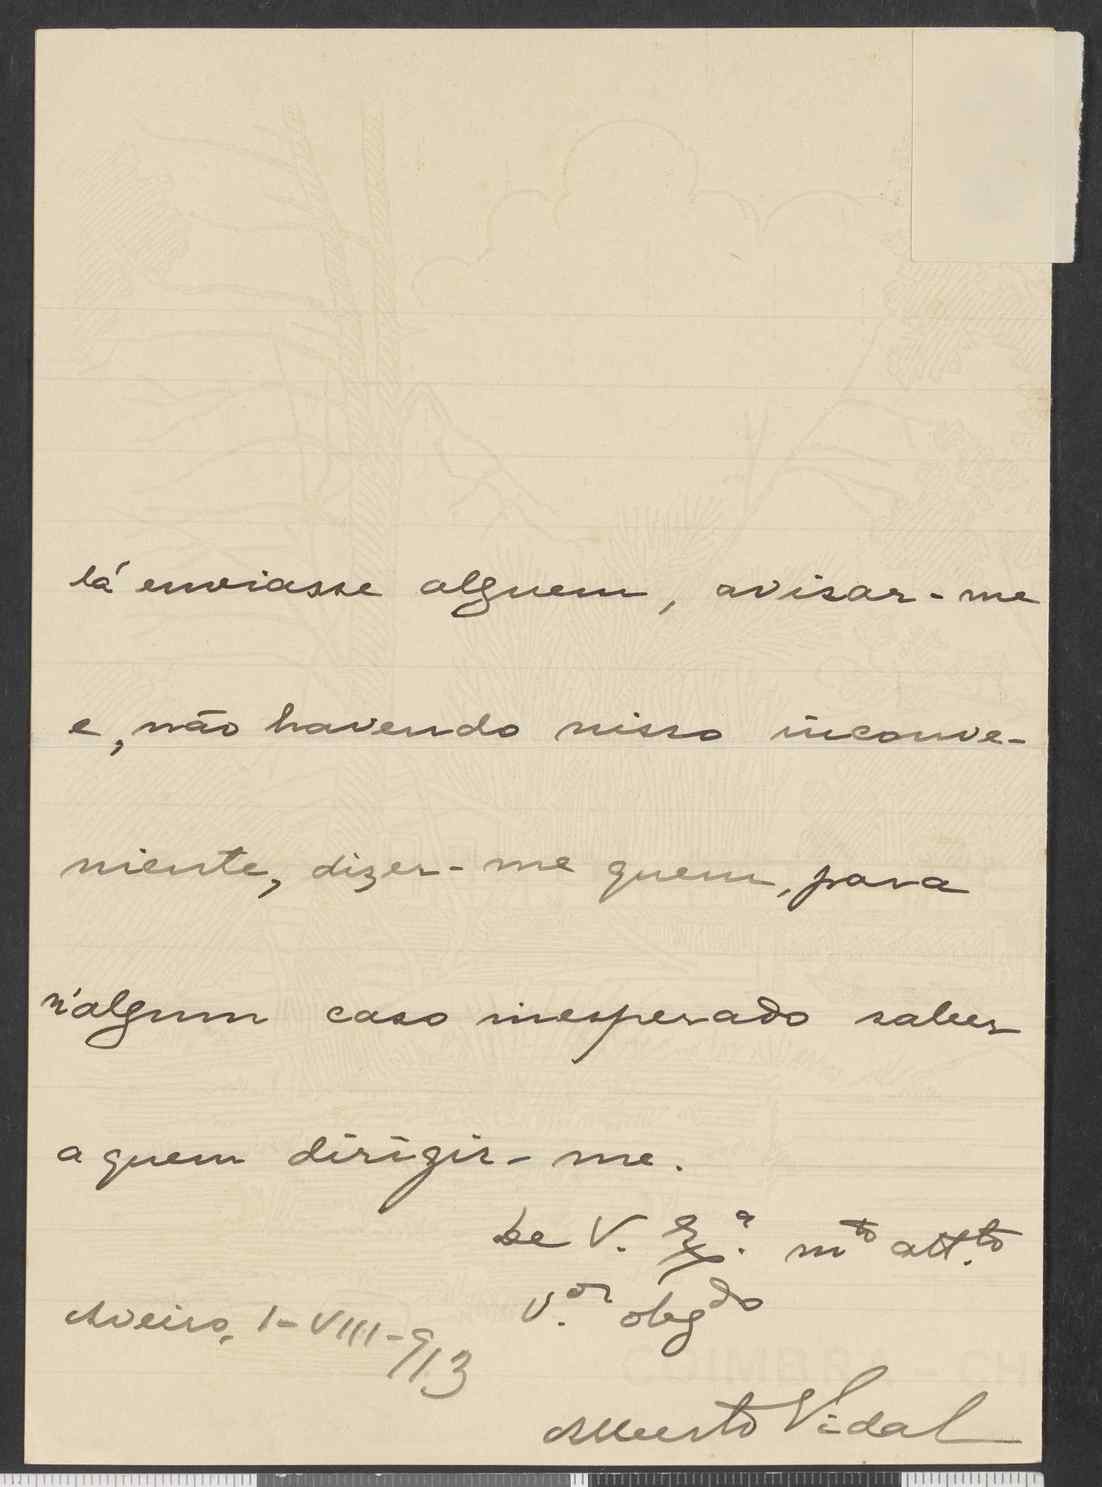 lá enviasse alguem, avisar-me
e, não havendo nisso inconve-
niente, dizer-me quem, para
n'algum caso inesperado saber
a quem dirigir-me.
De V. Ex.ª mto att.to
V.or obgdo
Aveiro, 1-VIII-913
COIMBRA - CH
Alberto Vidal